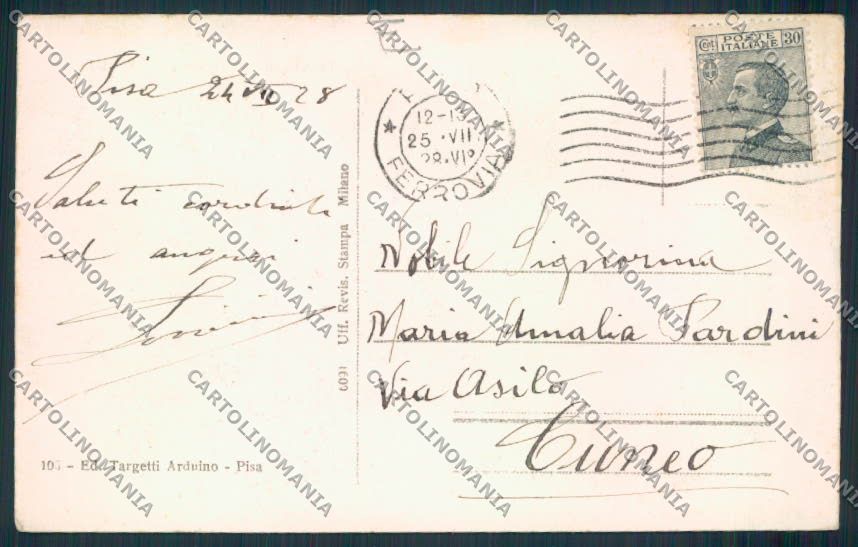 Pisa 24 VII 28
Saluti cordiali
ed auguri
12-13
25·VII
28·VI
FERROVIA
Cent. POSTE ITALIANE 30
Nobile Signorina
Maria Amalia Pardini
Via Asilo
Cuneo
6091 Uff. Revis. Stampa Milano
Ed. Targetti Arduino - Pisa
CARTOLINOMANIA